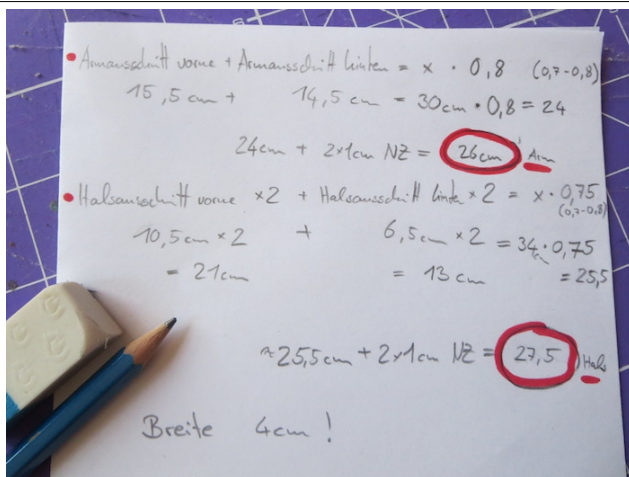 • Armausschnitt vorne + Armausschnitt hinten = x · 0,8 (0,7-0,8)
15,5 cm + 14,5 cm = 30cm · 0,8 = 24
24cm + 2x1cm NZ = 26cm Arm
• Halsausschnitt vorne x2 + Halsausschnitt hinten x2 = x · 0,75
(0,7-0,8)
10,5cm x2 + 6,5cm x2 = 34 · 0,75
= 21cm = 13cm = 25,5
≈ 25,5cm + 2x1cm NZ = 27,5 Hals
Breite 4cm !